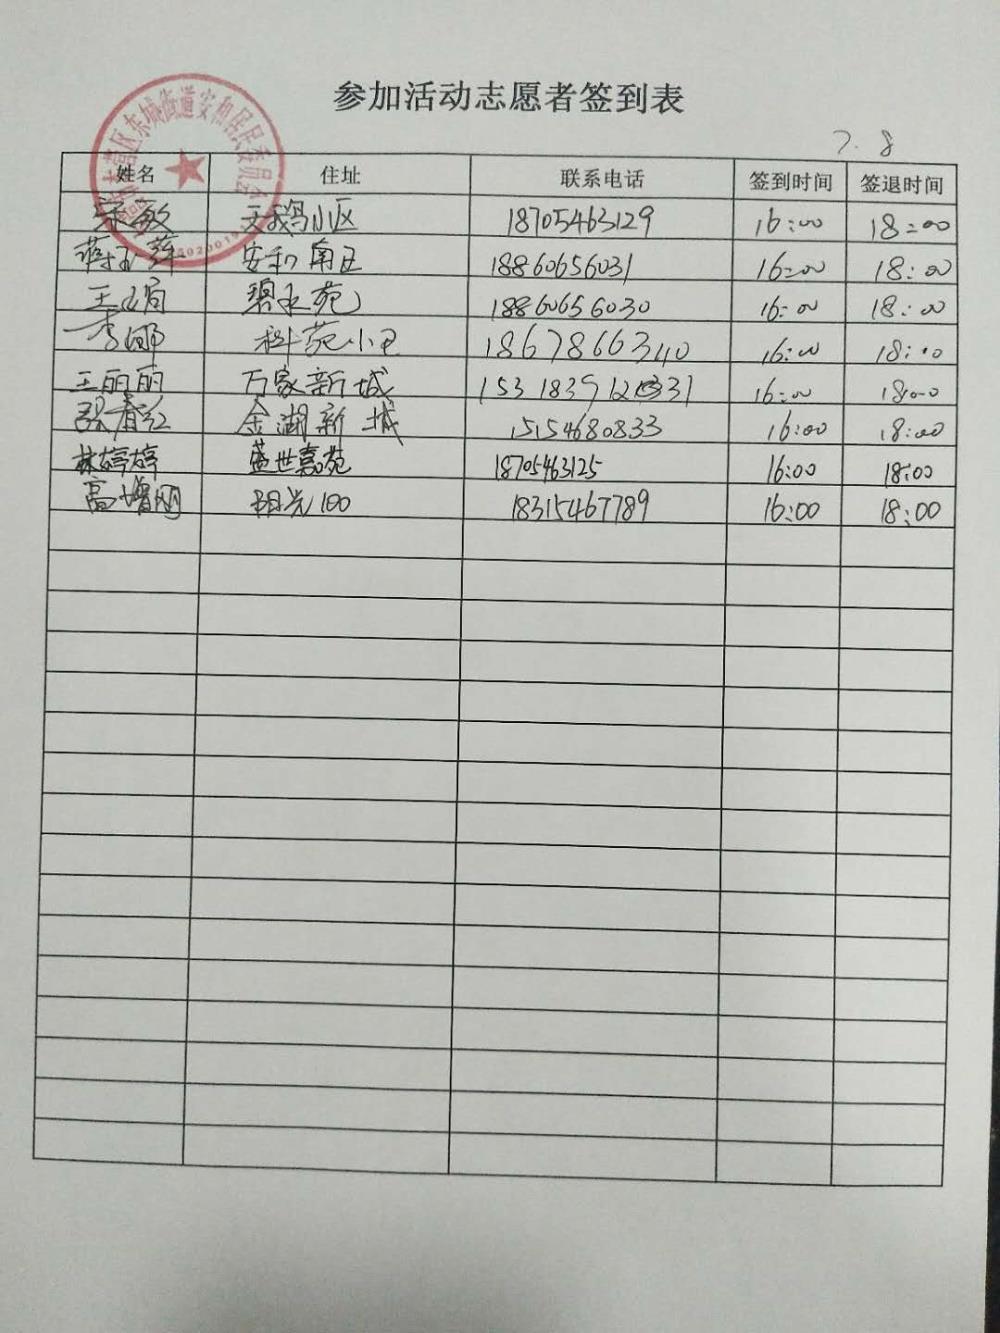 参加活动志愿者签到表
7.8
姓名 住址 联系电话 签到时间 签退时间
宋敏 天鹅小区 18705463129 16:00 18:00
蒋玉萍 安和南区 18860656031 16:00 18:00
王 碧水苑 18860656030 16:00 18:00
李娜 科苑小区 18678663340 16:00 18:00
王丽丽 万家新城 16:00 18:00
张春红 金湖新城 15154680833 16:00 18:00
林婷婷 盛世嘉苑 18705463125 16:00 18:00
高增 阳光100 18315467789 16:00 18:00
区东城街道安和居民委员会